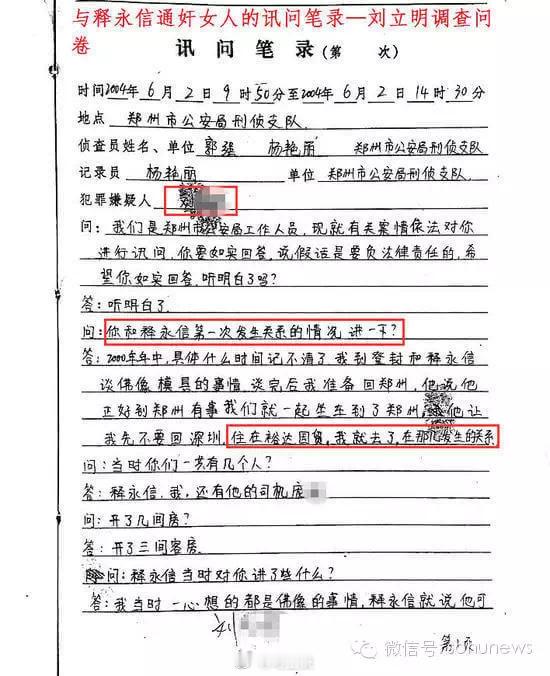 与释永信通奸女人的讯问笔录—刘立明调查问
卷
讯问笔录(第 次)
时间2004年6月2日9时50分至2004年6月2日14时30分
地点 郑州市公安局刑侦支队
侦查员姓名、单位 郭强 杨艳丽 郑州市公安局刑侦支队
记录员 杨艳丽 单位 郑州市公安局刑侦支队
犯罪嫌疑人
问:我们是郑州市公安局工作人员,现就有关案情依法对你
进行讯问,你要如实回答,说假话是要负法律责任的,希
望你如实回答,听明白了吗?
答:听明白了.
问:你和释永信第一次发生关系的情况讲一下?
答:2000年年中,具体什么时间记不清了,我到登封和释永信
谈佛像模具的事情,谈完后我准备回郑州,他说他
正好到郑州有事我们就一起坐车到了郑州, 他让
我先不要回深圳,住在裕达国贸,我就去了,在那儿发生的关系
问:当时你们一共有几个人?
答:释永信.我,还有他的司机庞
问:开了几间房?
答:开了三间客房.
问:释永信当时对你讲了些什么?
答:我当时一心想的都是佛像的事情,释永信就说他可
刘
第1页
微信号:sohunews